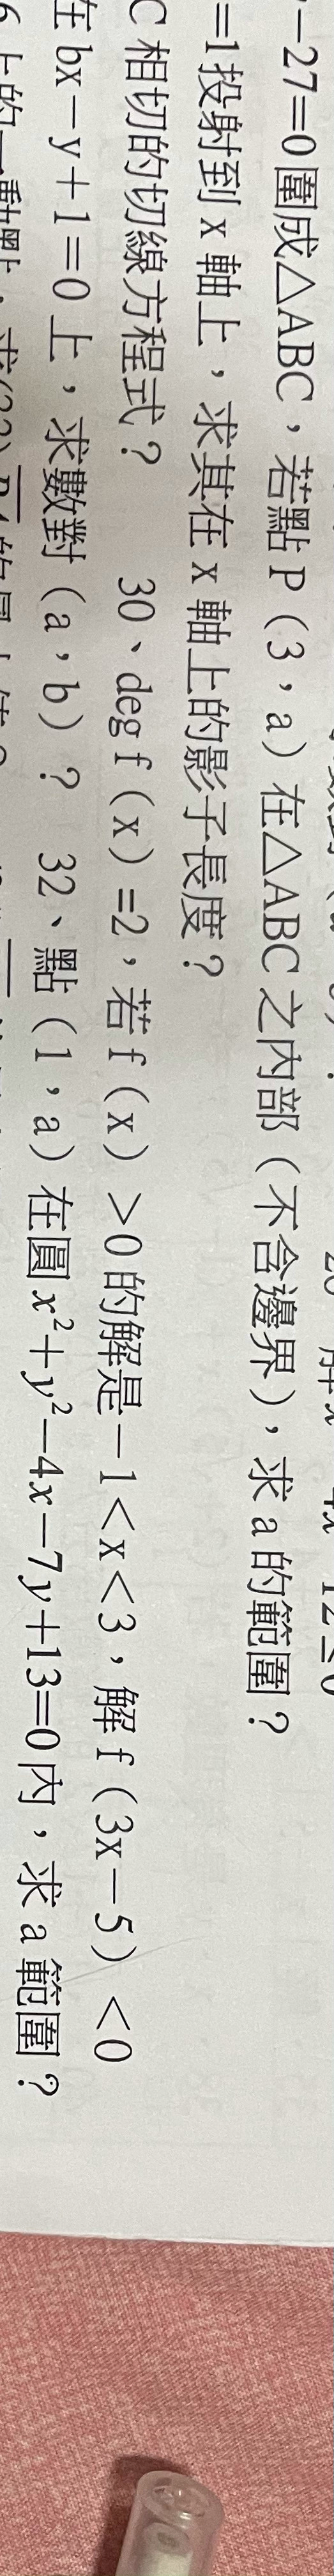 20 解x
-27=0圍成△ABC，若點P（3，a）在△ABC之內部（不含邊界），求a的範圍？
=1投射到x軸上，求其在x軸上的影子長度？
C相切的切線方程式？ 30、deg f（x）=2，若f（x）>0的解是－1<x<3，解f（3x－5）<0
在bx－y＋1=0上，求數對（a，b）？ 32、點（1，a）在圓x²+y²−4x−7y+13=0內，求a範圍？
6上的一動點，求(33)